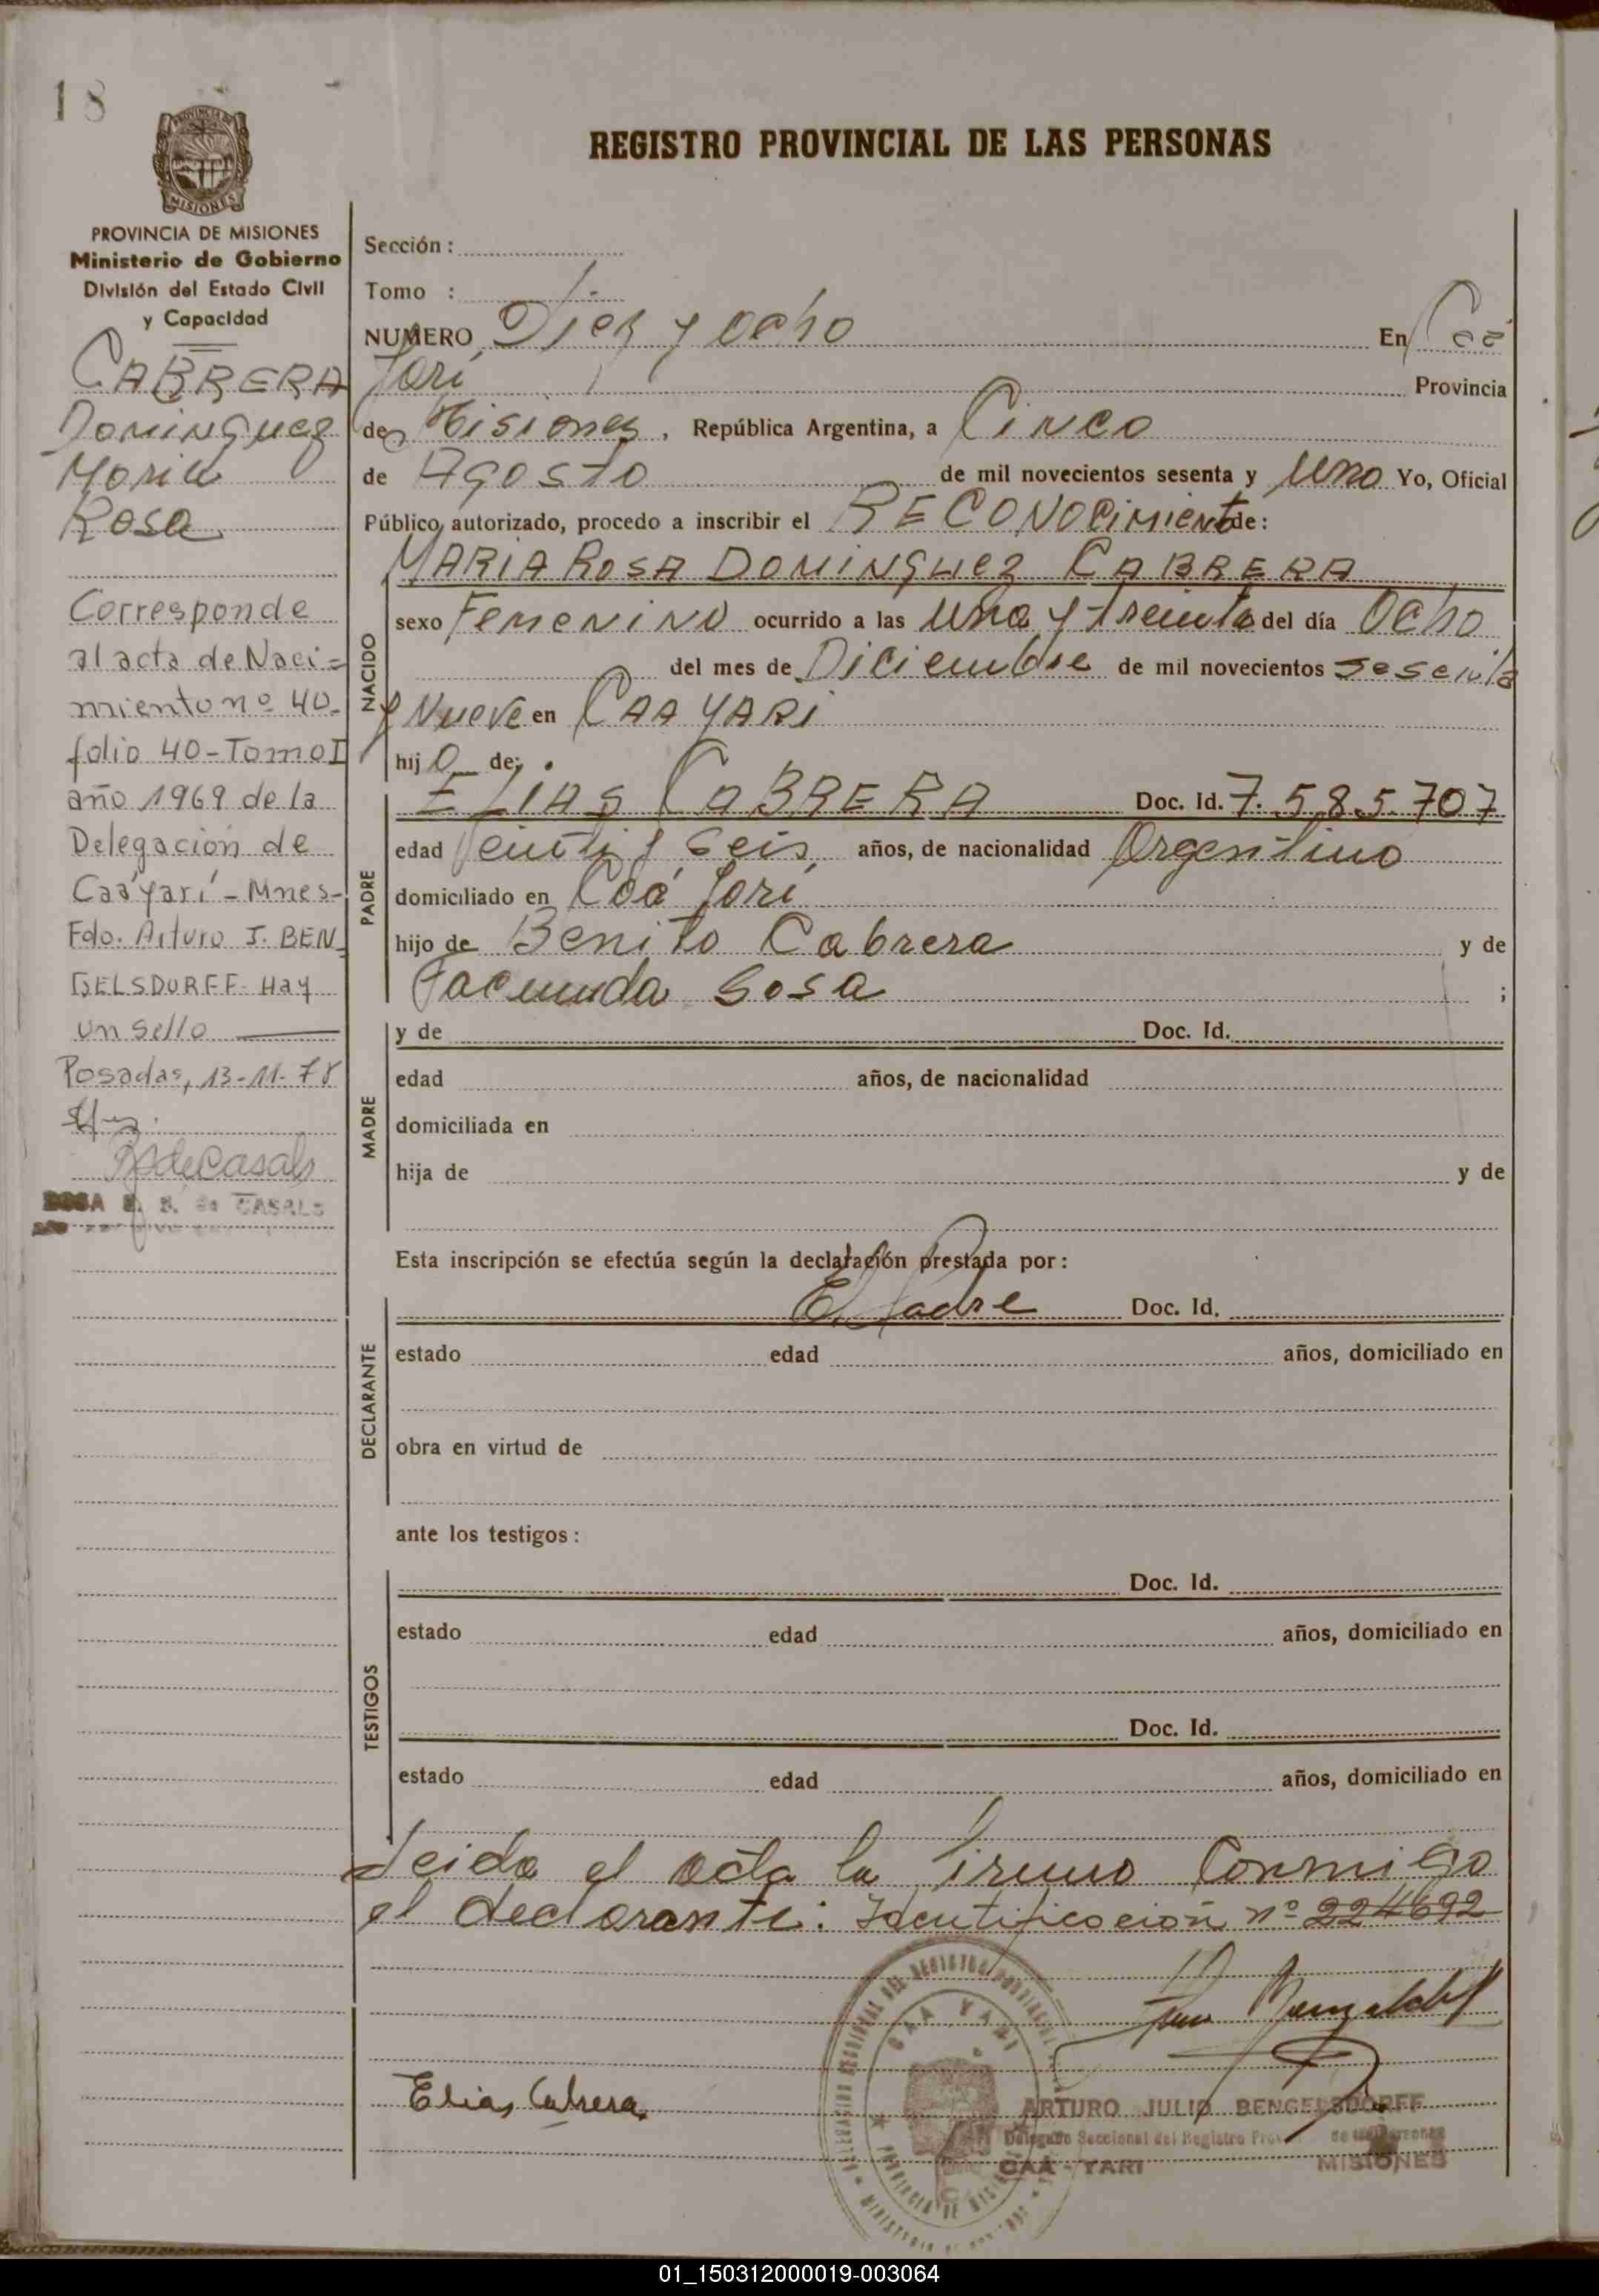 18
PROVINCIA DE
MISIONES
REGISTRO PROVINCIAL DE LAS PERSONAS
PROVINCIA DE MISIONES
Ministerio de Gobierno
División del Estado Civil
y Capacidad
CABRERA
Dominguez
Maria
Rosa
Corresponde
al acta de Naci=
miento nº 40-
folio 40-Tomo I
año 1969 de la
Delegación de
Caá Yarí - Mnes-
Fdo. Arturo J. BEN
GELSDORFF- Hay
un sello
Posadas, 13-11-78
RSdeCasals
ROSA S. B. de CASALS
Sección :
Tomo :
NUMERO Diez y ocho En Caá
Yarí Provincia
de Misiones, República Argentina, a Cinco
de Agosto de mil novecientos sesenta y Uno Yo, Oficial
Público, autorizado, procedo a inscribir el RECONOCimiento de:
NACIDO
MARIA ROSA DOMINGUEZ CABRERA
sexo Femenino ocurrido a las Una y treinta del día Ocho
del mes de Diciembre de mil novecientos sesenta
y Nueve en CAA YARi
hijo de:
PADRE
ELIAS CABRERA Doc. Id. 7.585.707
edad Veinti y Seis años, de nacionalidad Argentino
domiciliado en Caá Yarí
hijo de Benito Cabrera y de
Facunda Sosa ;
MADRE
y de Doc. Id.
edad años, de nacionalidad
domiciliada en
hija de y de
Esta inscripción se efectúa según la declaración prestada por:
DECLARANTE
El Padre Doc. Id.
estado edad años, domiciliado en
obra en virtud de
ante los testigos:
TESTIGOS
Doc. Id.
estado edad años, domiciliado en
Doc. Id.
estado edad años, domiciliado en
Leida el acta la firmo Conmigo
el declarante: Identificacion nº 224692
Elias Cabrera
CAA YARI
PROVINCIA DE MISIONES
ARTURO JULIO BENGELSDORFF
Delegado Seccional del Registro Prov. de las Personas
CAÁ - YARI MISIONES
01_150312000019-003064